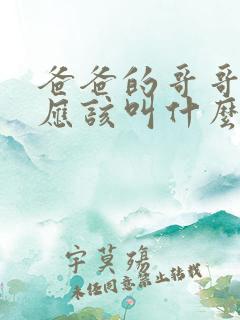 爸爸的哥哥
應該叫什麼
宇莫殤
未经同意禁止转载